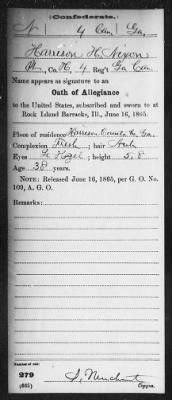 (Confederate.)
N 4 Cav. Ga.
Harrison H. Nixon
Pt., Co. H, 4 Reg't Ga Cav.
Name appears as signature to an
Oath of Allegiance
to the United States, subscribed and sworn to at
Rock Island Barracks, Ill., June 16, 1865.
Place of residence Harrison County Ga.
Complexion Fresh; hair Dark
Eyes Lt Hazel; height 5.8
Age 38 years.
NOTE: Released June 16, 1865, per G. O. No.
109, A. G. O.
Remarks:
Number of roll:
279
(665) Copyist.